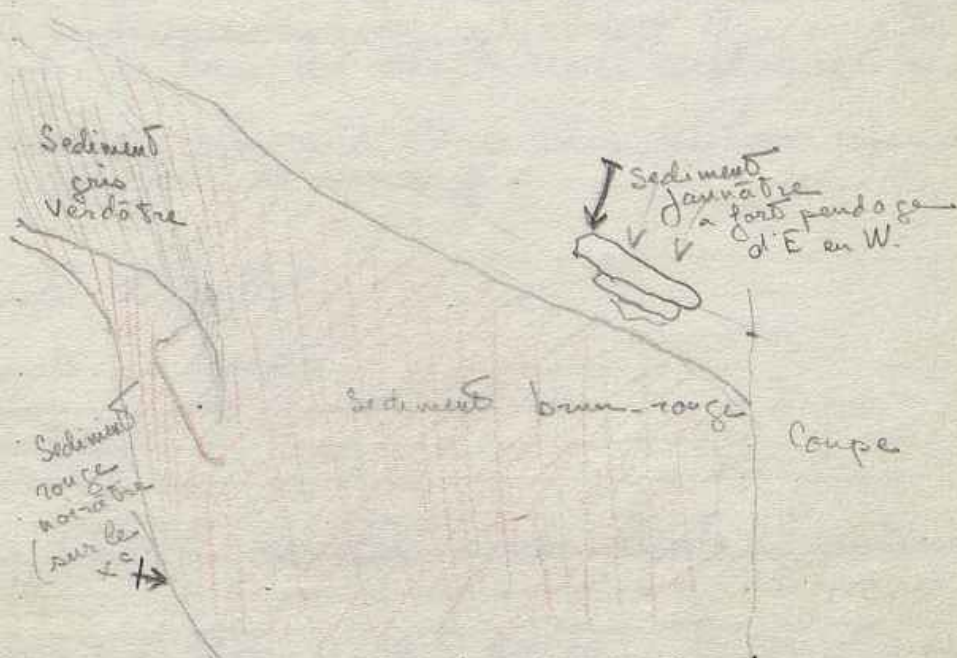 Sediment
gris
verdâtre
sediment
jaunâtre
a fort pendage
d'E en W.
Sediment brun-rouge
Coupe
Sediment
rouge
noirâtre
(sur le